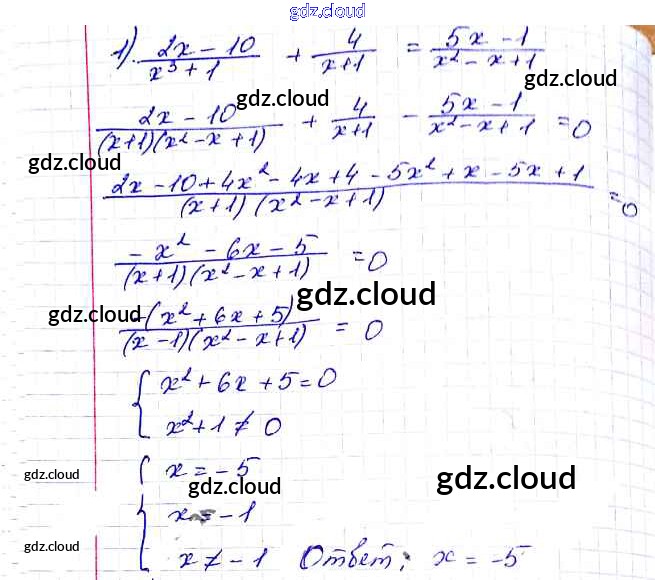 gdz.cloud
1) (2x - 10)/(x³ + 1) + 4/(x+1) = (5x - 1)/(x² - x + 1)
gdz.cloud
(2x - 10)/((x+1)(x² - x + 1)) + 4/(x+1) - (5x - 1)/(x² - x + 1) = 0
gdz.cloud
gdz.cloud
gdz.cloud
(2x - 10 + 4x² - 4x + 4 - 5x² + x - 5x + 1)/((x+1)(x² - x + 1)) = 0
(-x² - 6x - 5)/((x+1)(x² - x + 1)) = 0
gdz.cloud
gdz.cloud
-(x² + 6x + 5)/((x-1)(x² - x + 1)) = 0
{ x² + 6x + 5 = 0
x² + 1 ≠ 0
gdz.cloud
{ x = -5
gdz.cloud
gdz.cloud
{ x = -1
x ≠ -1 Ответ: x = -5
gdz.cloud
gdz.cloud